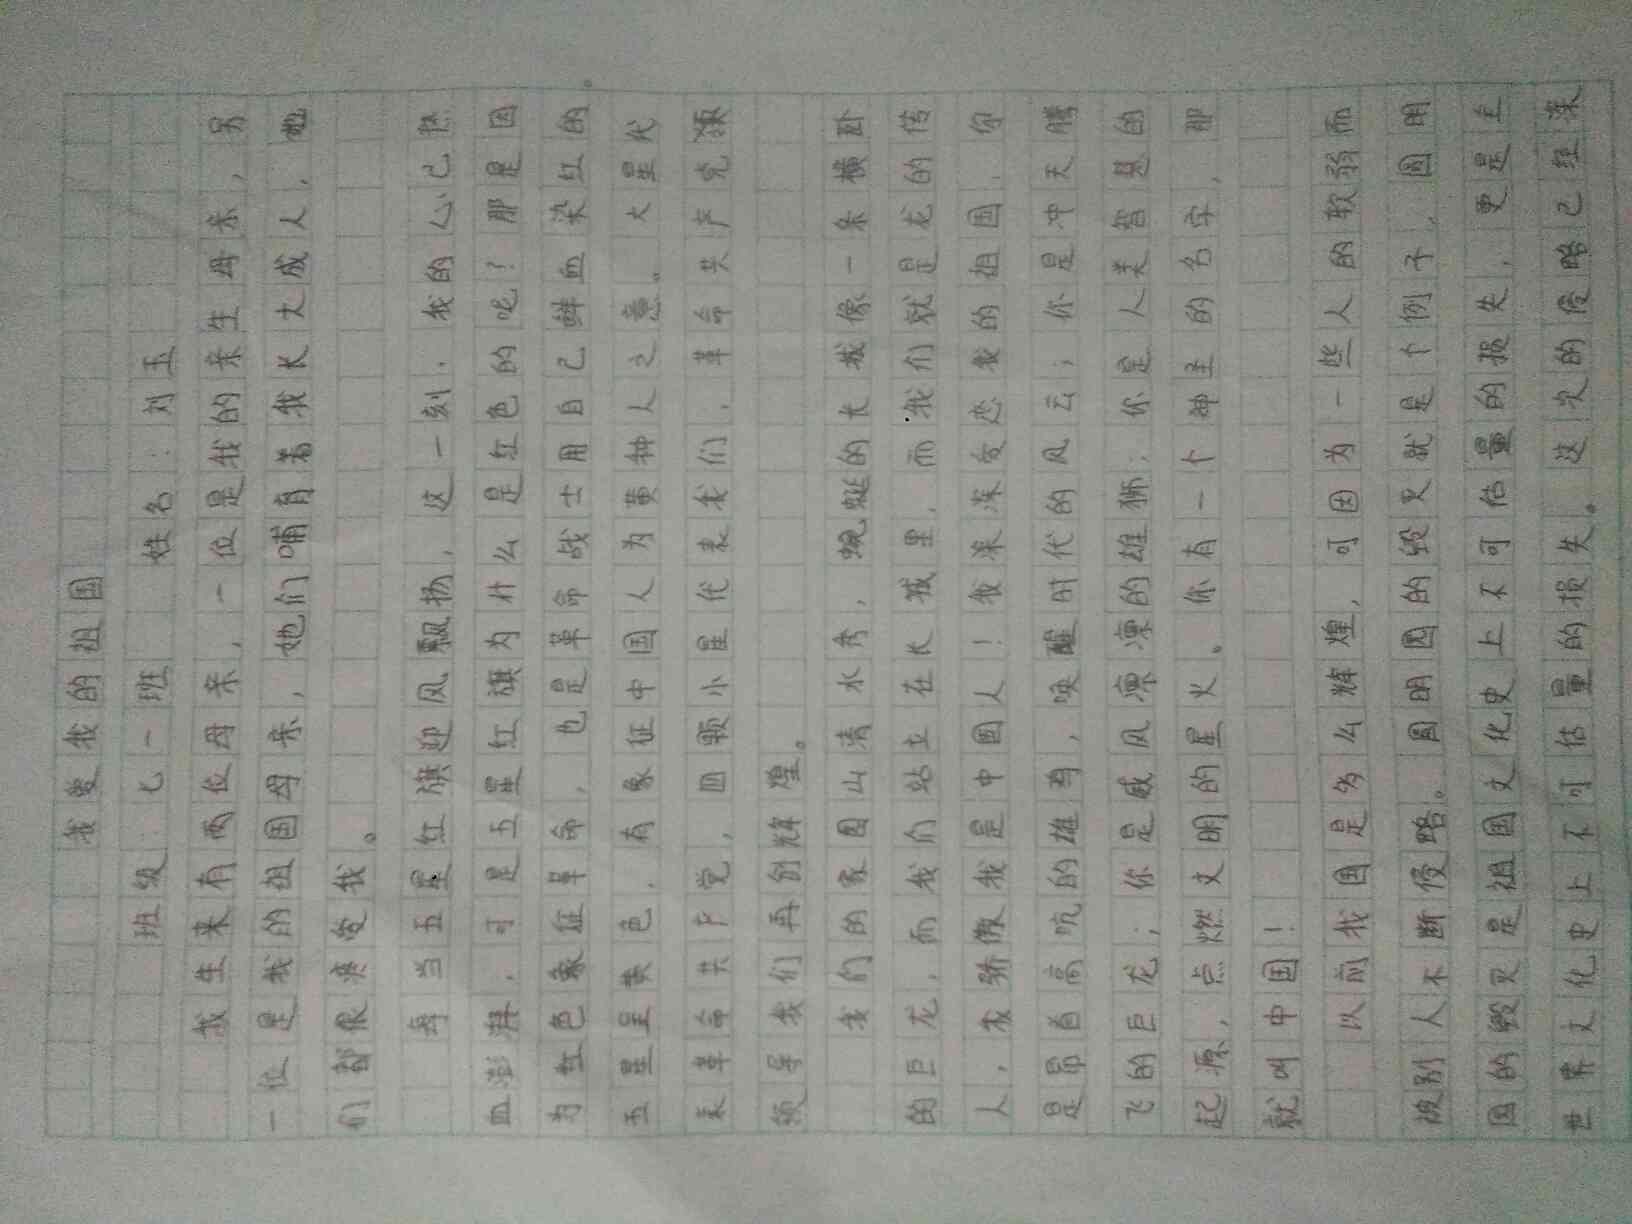 我爱我的祖国
班级：七一班 姓名：刘玉
我生来有两位母亲，一位是我的亲生母亲，另
一位是我的祖国母亲，她们哺育着我长大成人，她
们都很疼爱我。
每当五星红旗迎风飘扬，这一刻，我的心已热
血澎湃，可是五星红旗为什么是红色的呢？那是因
为红色象征革命，也是革命战士用自己鲜血染红的。
五星呈黄色，有象征中国人为黄种人之意。大星代
表革命共产党，四颗小星代表我们，革命共产党领
领导我们再创辉煌。
我们的家园山清水秀，蜿蜒的长城像一条横卧
的巨龙，而我们站立在长城里，而我们就是龙的传
人，我骄傲我是中国人！我深深爱恋我的祖国，你
是昂首高吭的雄鸡，唤醒时代的风云；你是冲天腾
飞的巨龙；你是威风凛凛的雄狮；你是人类智慧的
起源，点燃文明的星火。你有一个神圣的名字，那
就叫中国！
以前我国是多么辉煌，可因为一些人的软弱而
被别人不断侵略。圆明园的毁灭就是个例子，圆明
园的毁灭是祖国文化史上不可估量的损失，更是
世界文化史上不可估量的损失。这次的侵略已经深